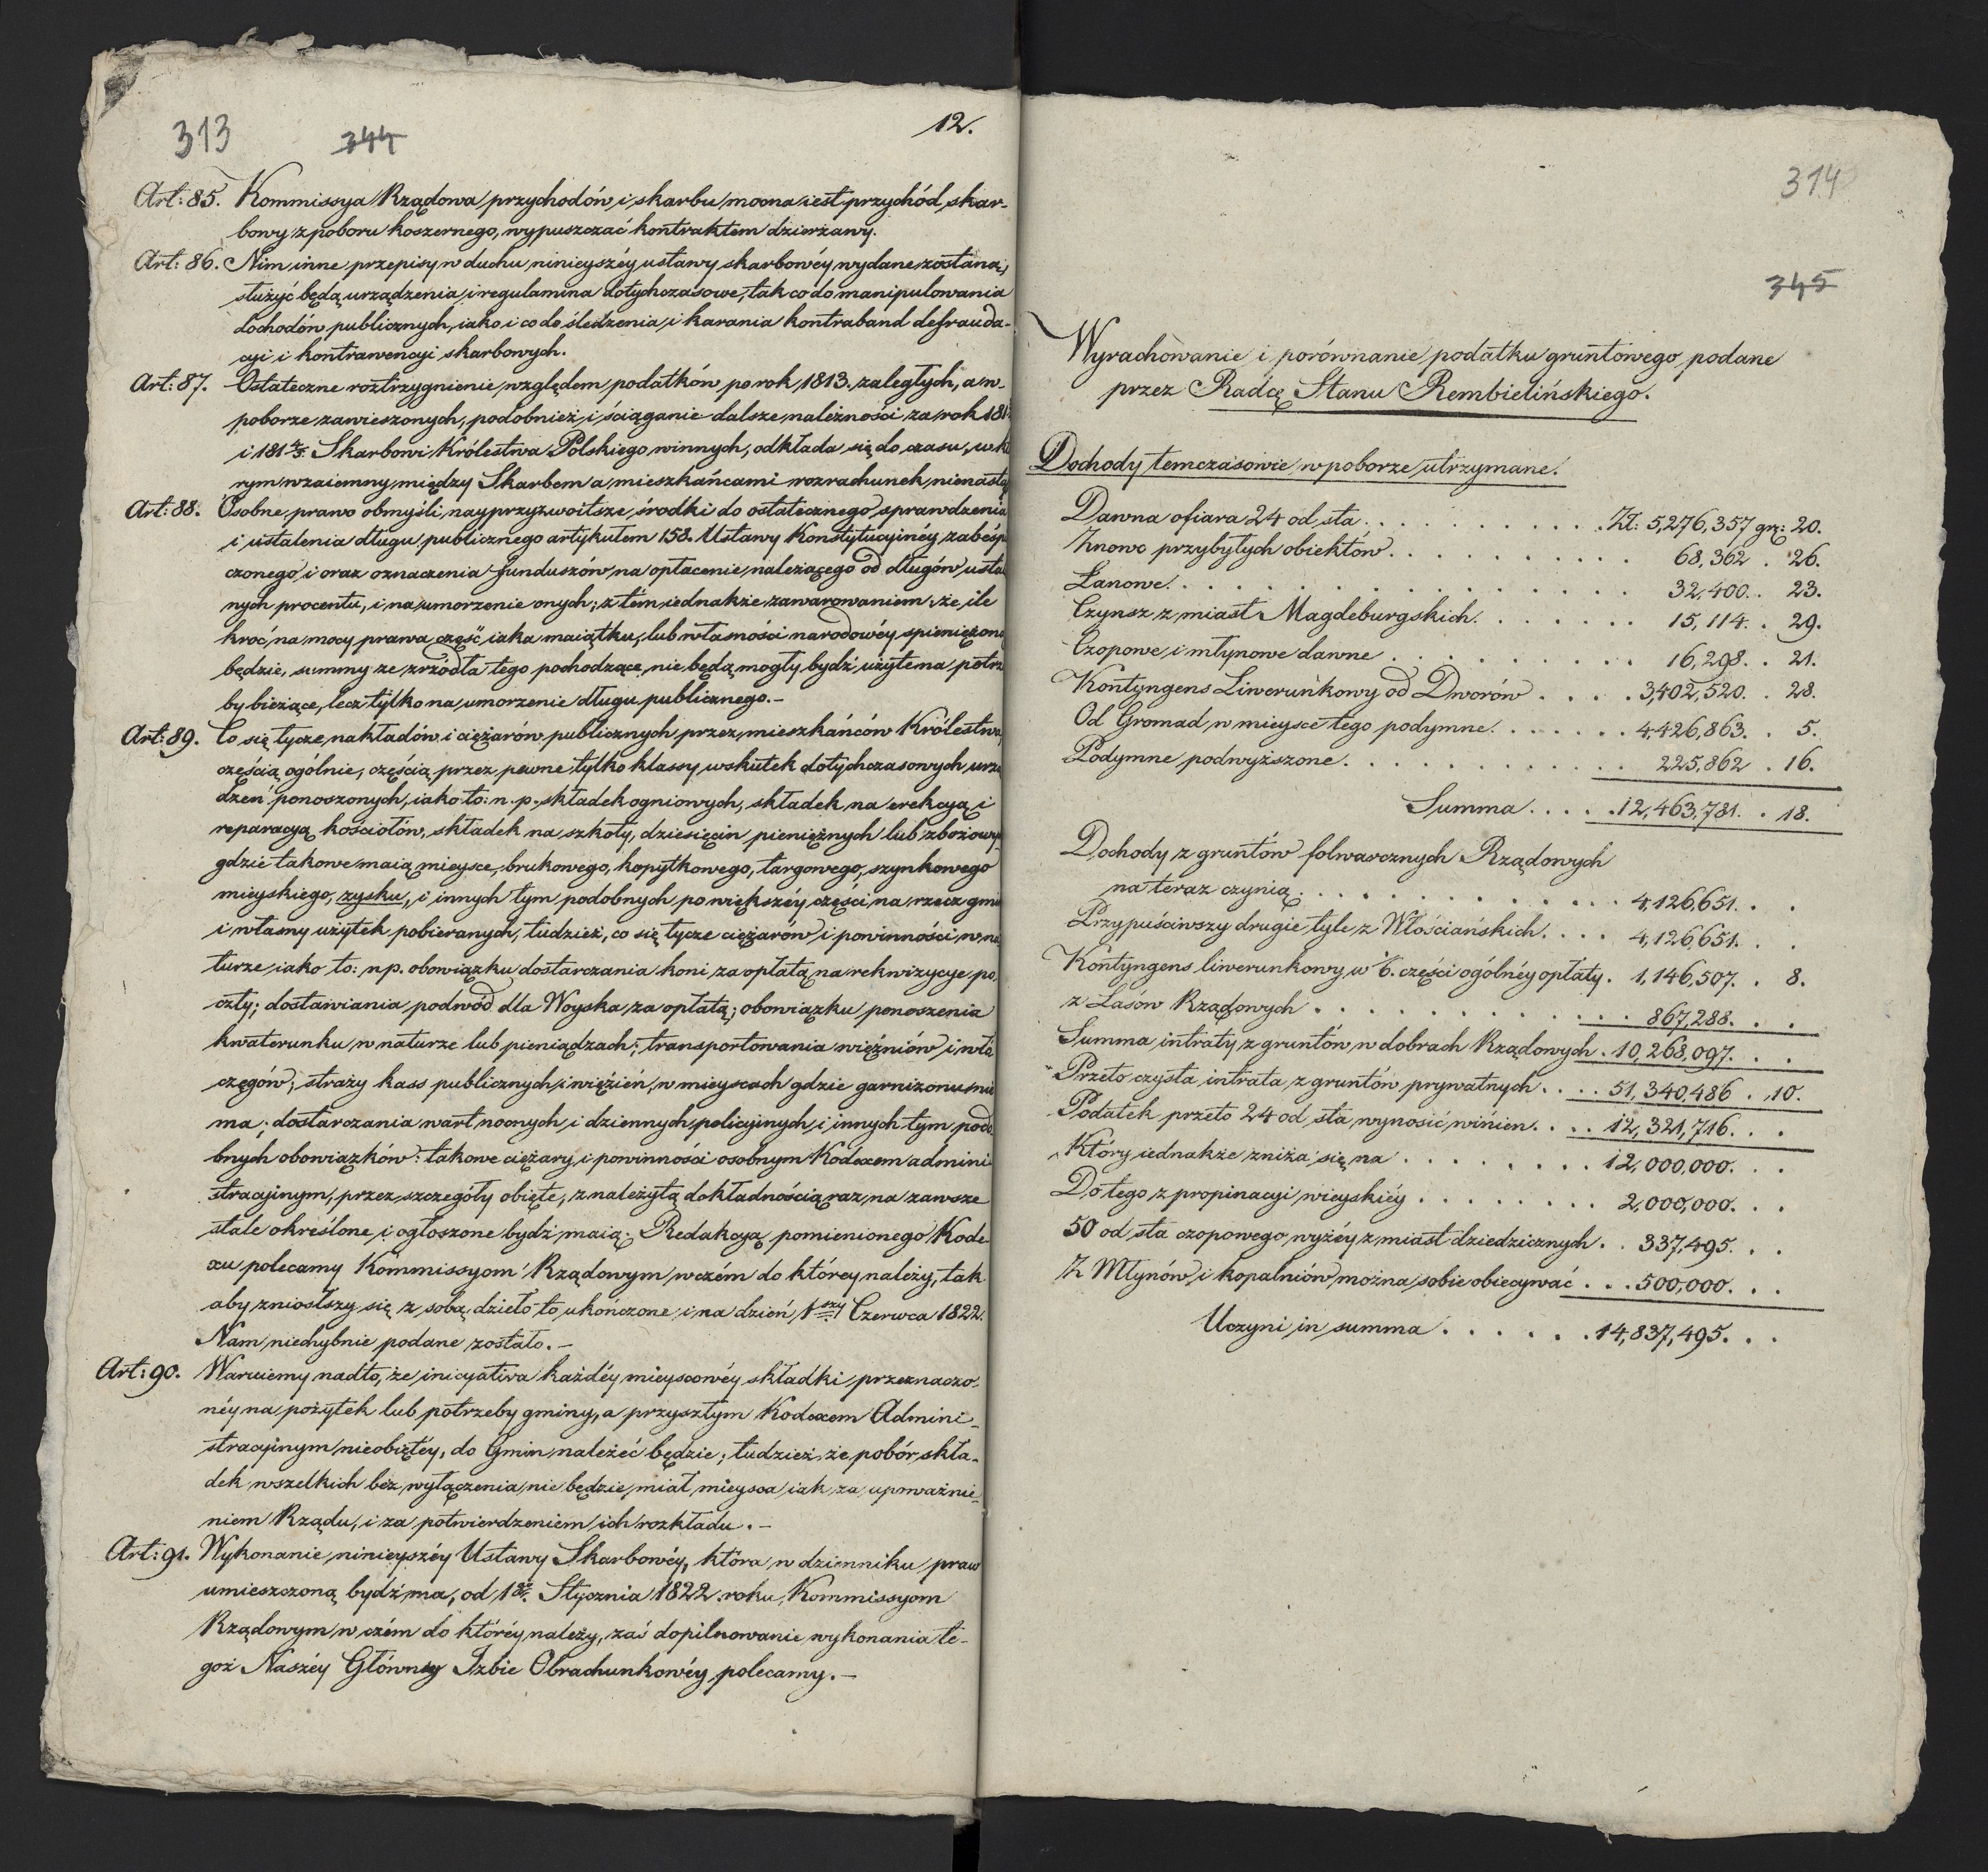 313
344
12.
Art: 85. Kommissya Rządowa przychodów i skarbu mocna iest przychód skar-
bowy z poboru koszernego, wypuszczać kontraktem dzierżawy.
Art: 86. Nim inne przepisy w duchu ninieyszéy ustawy skarbowéy wydane zostaną,
służyć będą urządzenia i regulamina dotychczasowe, tak co do manipulowania
dochodów publicznych, iako i co do śledzenia i karania kontraband defrauda-
cyi i kontrawencyi skarbowych.
Art: 87. Ostateczne roztrzygnienie względem podatków po rok 1813. zaległych, a w
poborze zawieszonych, podobnież i ściąganie dalsze należności za rok 181
i 181 4/5. Skarbowi Królestwa Polskiego winnych, odkłada się do czasu, w kt
rym wzaiemny między Skarbem a mieszkańcami rozrachunek nienastą
Art: 88. Osobne prawo obmyśli nayprzyzwoitsze środki do ostatecznego sprawdzenia
i ustalenia długu publicznego artykułem 158. Ustawy Konstytucyinéy zabéśp
czonego i oraz oznaczenia funduszów na opłacenie należącego od długów usta
nych procentu, i na umorzenie onych; z tém iednakże zawarowaniem, że ile
kroć na mocy prawa część iaka maiątku, lub własności narodowéy spieniężon
będzie, summy ze zrzódła tego pochodzące, nie będą mogły bydź użyte na potrz
by bieżące, lecz tylko na umorzenie długu publicznego.-
Art: 89. Co się tycze nakładów i ciężarów publicznych przez mieszkańców Królestwa,
częścią ogólnie, częścią przez pewne tylko klassy wskutek dotychczasowych urzą
dzeń ponoszonych, iako to: n. p. składek ogniowych, składek na erekcyą i
reparacyą kościołów, składek na szkoły, dziesięcin pieniężnych lub zbożowy
gdzie takowe maią mieysce, brukowego, kopytkowego, targowego, szynkowego
mieyskiego, zysku, i innych tym podobnych po większéy części na rzecz gmi
i własny użytek pobieranych, tudzież, co się tycze ciężarów i powinności w na
turze iako to: np. obowiązku dostarczania koni za opłatą na rekwizycye po
czty; dostawiania podwód dla Woyska za opłatą; obowiązku ponoszenia
kwaterunku w naturze lub pieniądzach; transportowania więźniów i włó
częgów; straży kass publicznych i więzień, w mieyscach gdzie garnizonu nie
ma; dostarczania wart nocnych i dziennych policyinych i innych tym podo
bnych obowiązków: takowe ciężary i powinności osobnym Kodexem admini
stracyinym, przez szczegóły obięte, z należytą dokładnością raz na zawsze
stale określone i ogłoszone bydź maią. Redakcyą pomienionego Kode-
xu polecamy Kommissyom Rządowym w czém do którey należy, tak
aby zniosłszy się z sobą, dzieło to ukończone i na dzień 1szy Czerwca 1822.
Nam niechybnie podane zostało.-
Art: 90. Waruiemy nadto, że inicyativa każdéy mieyscowéy składki przeznaczo-
néy na pożytek lub potrzeby gminy, a przyszłym Kodexem Admini-
stracyinym nieobiętéy, do Gmin należeć będzie; tudzież że pobór skła-
dek wszelkich bez wyłączenia nie będzie miał mieysca iak za upoważnie-
niem Rządu, i za potwierdzeniem ich rozkładu.-
Art: 91. Wykonanie ninieyszéy Ustawy Skarbowéy, która w dzienniku praw
umieszczoną bydź ma, od 1go. Stycznia 1822. roku, Kommissyom
Rządowym w czém do któréy należy, zaś dopilnowanie wykonania te-
goż Naszéy Głównéy Izbie Obrachunkowéy polecamy.-
314
345
Wyrachowanie i porównanie podatku gruntowego podane
przez Radcę Stanu Rembielińskiego.
Dochody temczasowie w poborze utrzymane.
Dawna ofiara 24 od sta . . . . . . . . . . Zł: 5,276,357 gr: 20.
Znowo przybyłych obiektów . . . . . . . . . . 68,362 . 26.
Łanowe . . . . . . . . . . . . . . 32,400. . 23.
Czynsz z miast Magdeburgskich. . . . . . . . 15,114. . 29.
Czopowe i młynowe dawne . . . . . . . . . 16,298. . 21.
Kontyngens Liwerunkowy od Dworów . . . . . 3,402,520. . 28.
Od Gromad w mieysce tego podymne. . . . . . . 4,426,863. . 5.
Podymne podwyższone. . . . . . . . . . . 225,862 . 16.
Summa . . . . . 12,463,781. . 18.
Dochody z gruntów folwarcznych Rządowych
na teraz czynią . . . . . . . . . . . . 4,126,651. . .
Przypuściwszy drugie tyle z Włościańskich. . . . 4,126,651. . .
Kontyngens liwerunkowy w 1/6. części ogólnéy opłaty . 1,146,507. . 8.
z Lasów Rządowych . . . . . . . . . . . . 867,288. . .
Summa intraty z gruntów w dobrach Rządowych . 10,268,097. . .
Przeto czysta intrata z gruntów prywatnych . . . . 51,340,486 . . 10.
Podatek przeto 24 od sta wynosić winien. . . . 12,321,716. . .
Który iednakże zniża się na . . . . . . . . 12,000,000. . .
Do tego z propinacyi wieyskiéy . . . . . . . . 2,000,000. . .
50 od sta czopowego wyżéy z miast dziedzicznych . . 337,495. . .
Z Młynów i kopalniów można sobie obiecywać . . . 500,000. . .
Uczyni in summa . . . . . . 14,837,495. . .